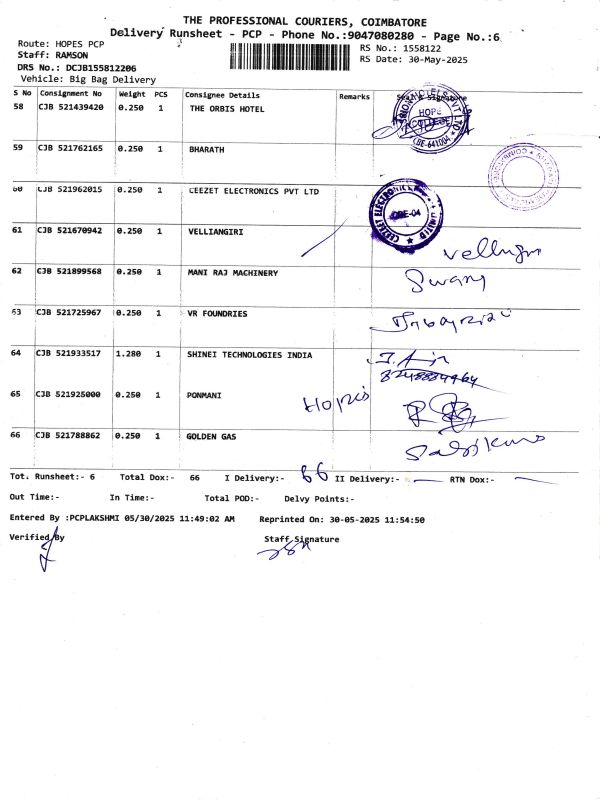 THE PROFESSIONAL COURIERS, COIMBATORE
Delivery Runsheet - PCP - Phone No.:9047080280 - Page No.:6
Route: HOPES PCP
RS No.: 1558122
Staff: RAMSON
RS Date: 30-May-2025
DRS No.: DCJB155812206
Vehicle: Big Bag Delivery
S No Consignment No Weight PCS Consignee Details Remarks Seal & Signature
58 CJB 521439420 0.250 1 THE ORBIS HOTEL
HOPE COLLEGE
CBE-641004
59 CJB 521762165 0.250 1 BHARATH
60 CJB 521962015 0.250 1 CEEZET ELECTRONICS PVT LTD
CBE-04
61 CJB 521670942 0.250 1 VELLIANGIRI
62 CJB 521899568 0.250 1 MANI RAJ MACHINERY
63 CJB 521725967 0.250 1 VR FOUNDRIES
64 CJB 521933517 1.280 1 SHINEI TECHNOLOGIES INDIA
65 CJB 521925000 0.250 1 PONMANI
66 CJB 521788862 0.250 1 GOLDEN GAS
Tot. Runsheet:- 6 Total Dox:- 66 I Delivery:- 66 II Delivery:- RTN Dox:-
Out Time:- In Time:- Total POD:- Delvy Points:-
Entered By :PCPLAKSHMI 05/30/2025 11:49:02 AM Reprinted On: 30-05-2025 11:54:50
Verified By Staff Signature